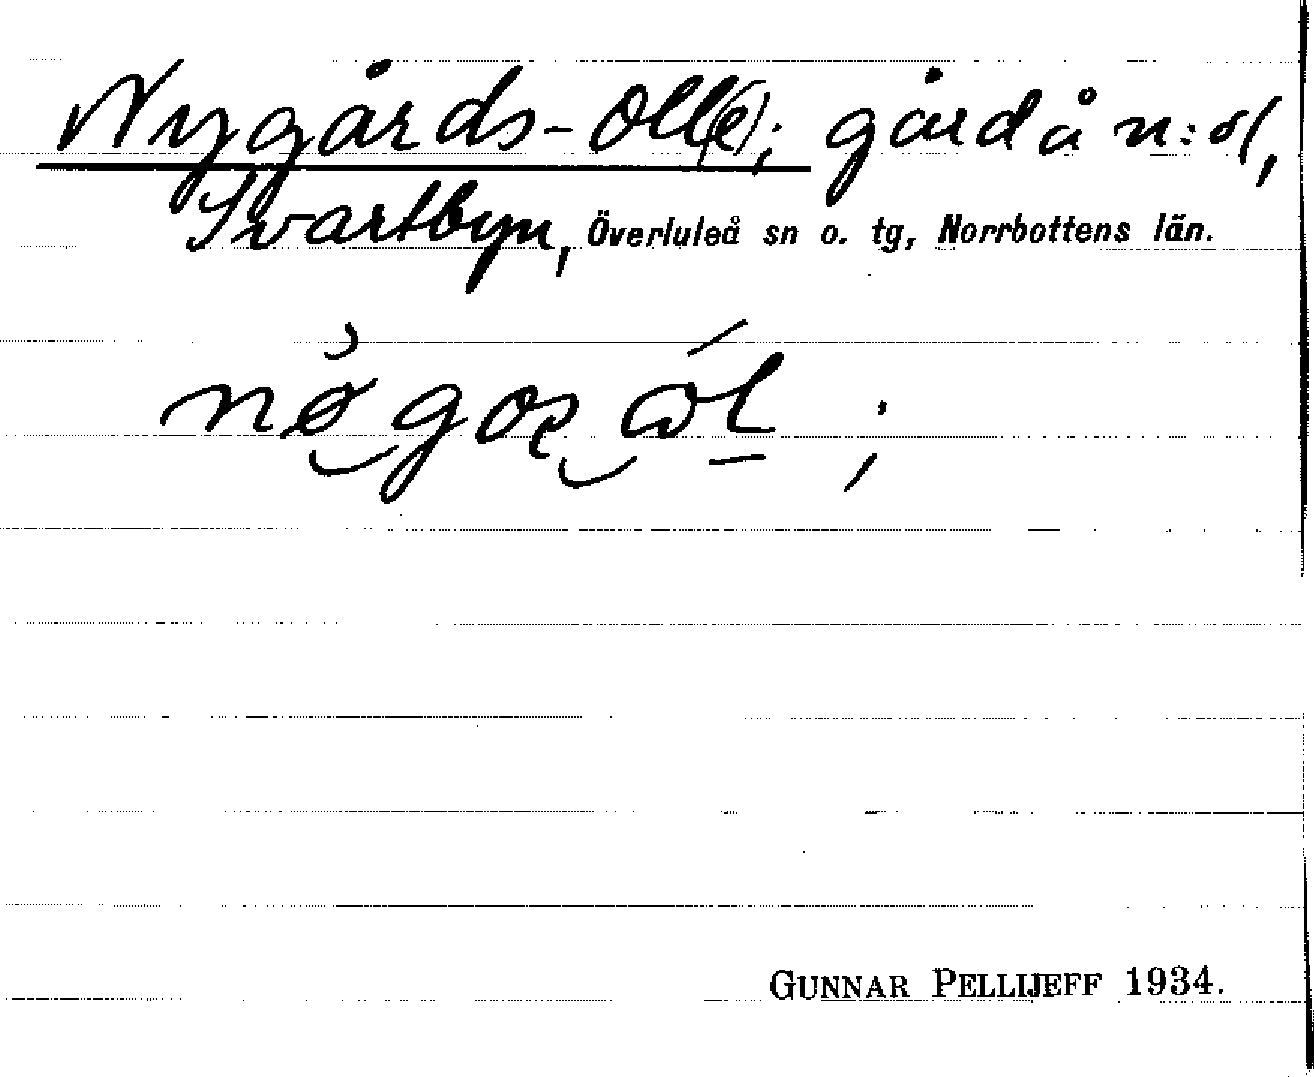 Nygårds-Oll(e); gård å n:o 1,
Svartbyn, Överluleå sn o. tg, Norrbottens län.
GUNNAR PELLIJEFF 1934.